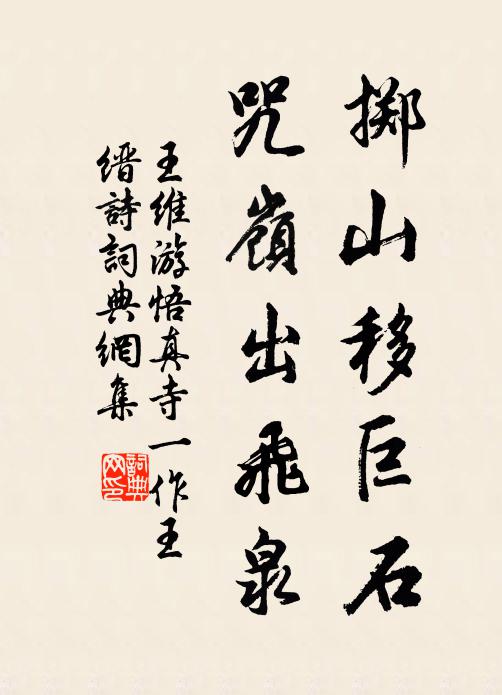 掷山移巨石
咒嶺出飛泉
王維游悟真寺一作王
缙詩詞典網集
詞典网印